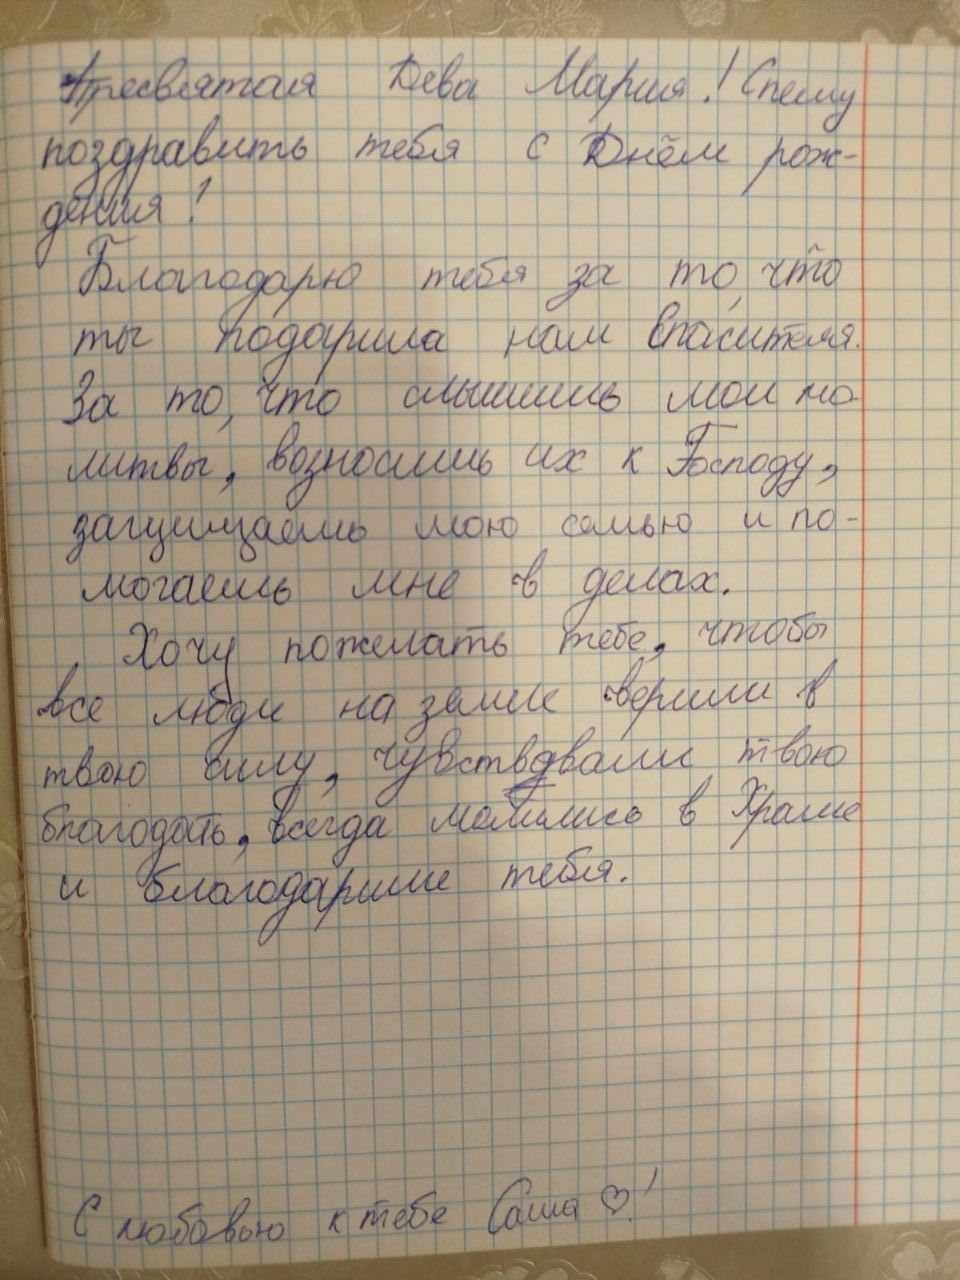 Пресвятая Дева Мария! Спешу
поздравить тебя с Днём рож-
дения!
Благодарю тебя за то, что
ты подарила нам Спасителя.
За то, что слышишь мои мо
литвы, возносишь их к Господу,
защищаешь мою семью и по-
могаешь мне в делах.
Хочу пожелать тебе, чтобы
все люди на земле верили в
твою силу, чувствовали твою
благодать, всегда молились в Храме
и благодарили тебя.
С любовью к тебе Саша ♡!